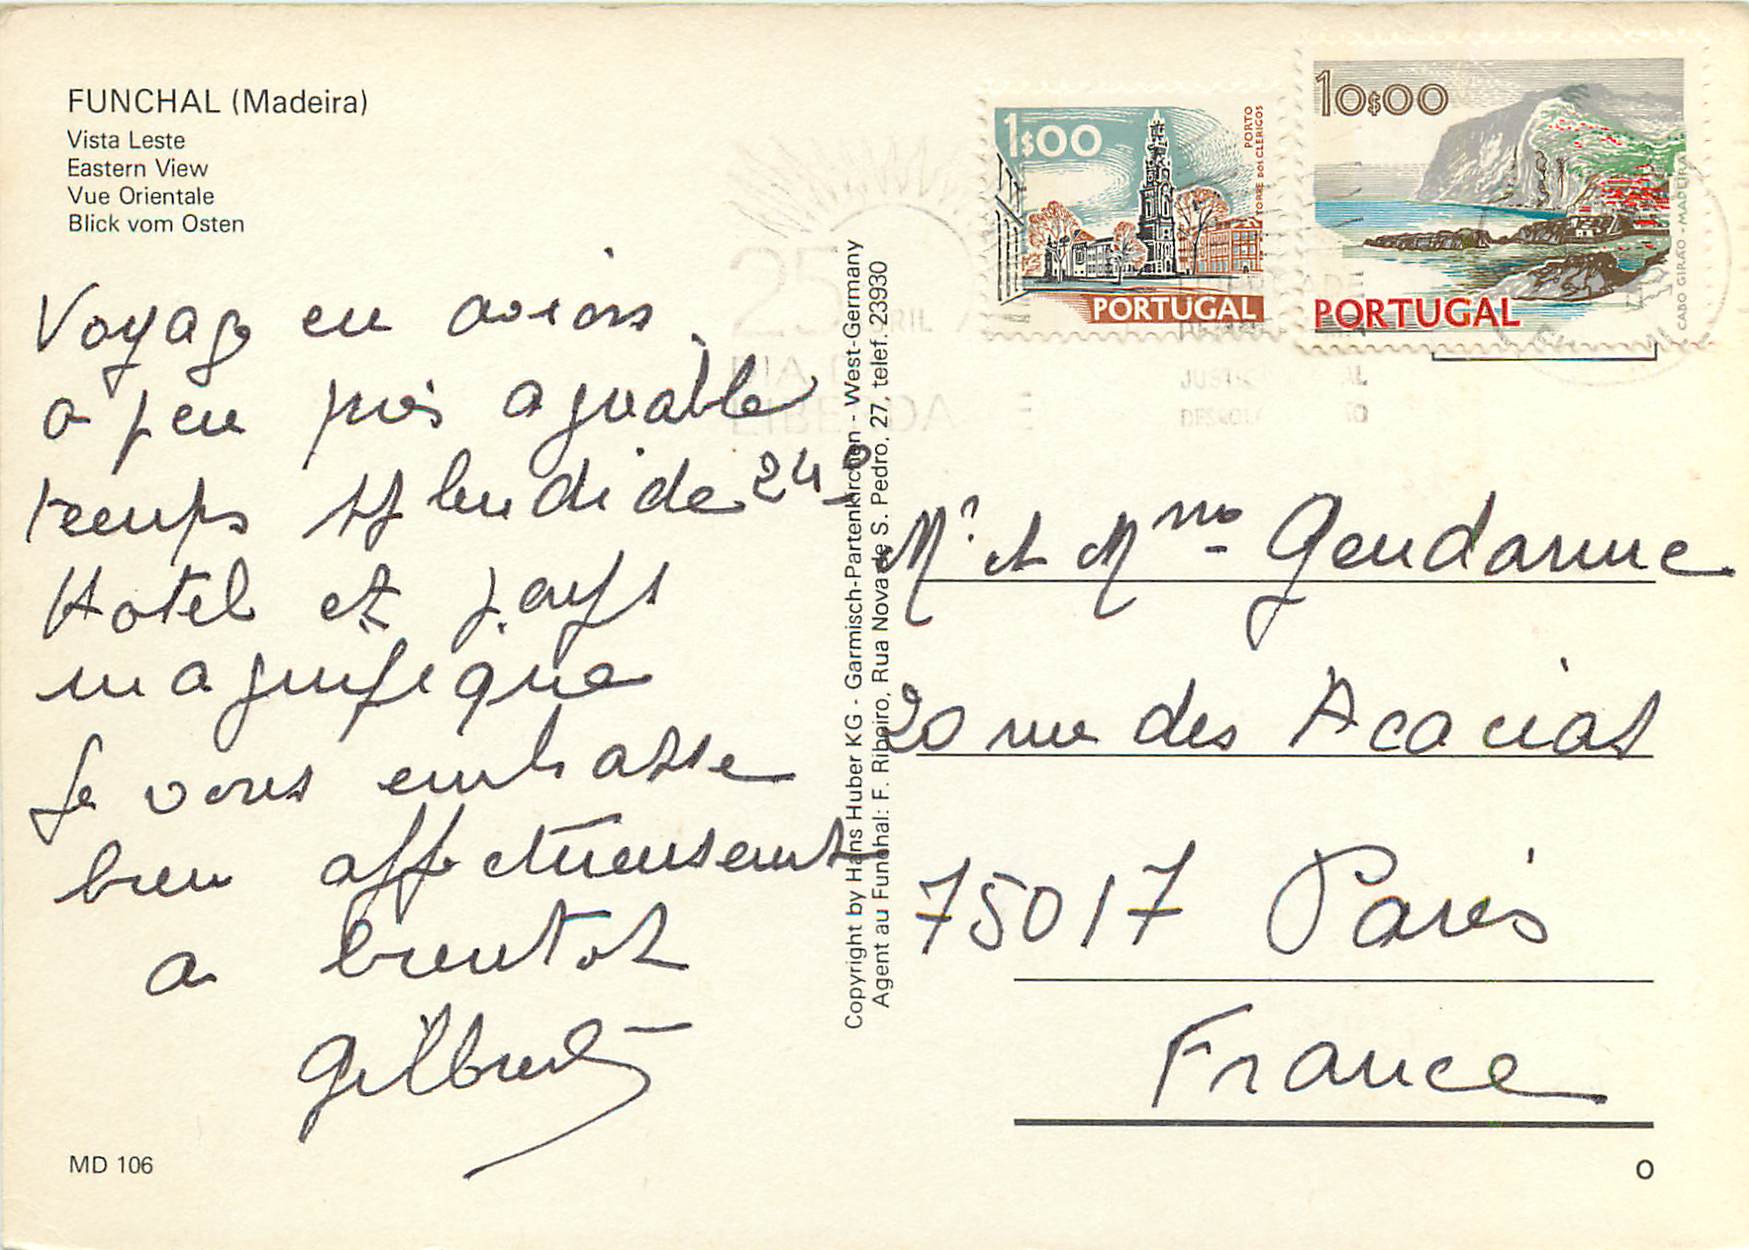 FUNCHAL (Madeira)
Vista Leste
Eastern View
Vue Orientale
Blick vom Osten
Voyage en avion
a peu près agréable
temps splendide 24°
Hotel et pays
magnifique
Je vous embrasse
bien affectueusement
a bientot
Gilberte
MD 106
Copyright by Hans Huber KG - Garmisch-Partenkirchen - West-Germany
Agent au Funchal: F. Ribeiro, Rua Nova de S. Pedro, 27, telef. 23930
1$00
PORTO
TORRE DOS CLERIGOS
PORTUGAL
10$00
CABO GIRÃO - MADEIRA
PORTUGAL
25 ABRIL
DIA DA
LIBERDADE
Mr et Mme Gendarme
20 rue des Acacias
75017 Paris
France
O